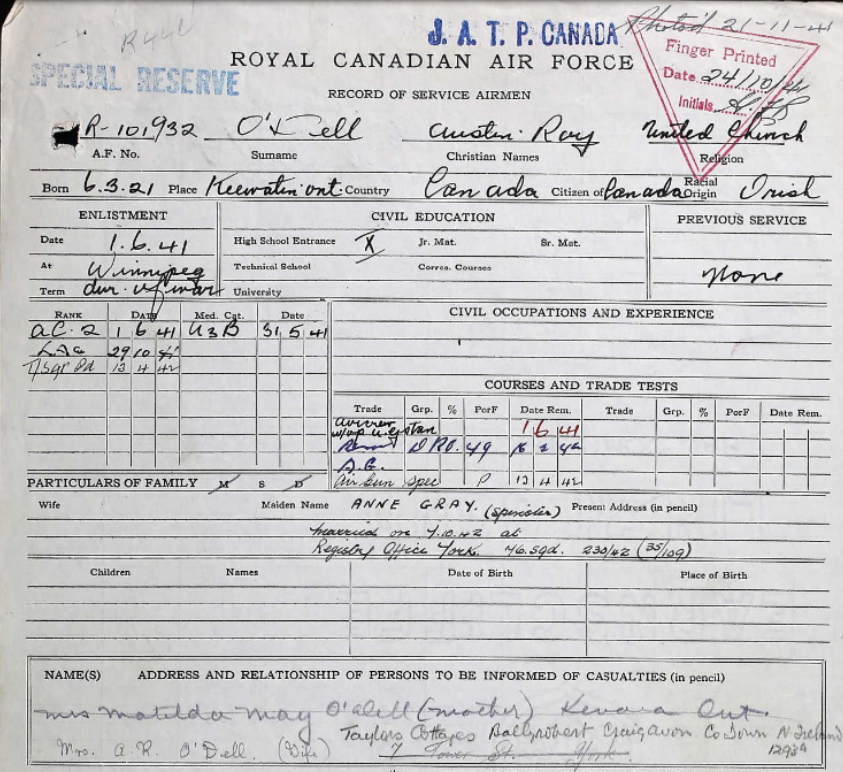 J. A. T. P. CANADA Photo'd 21-11-41
SPECIAL RESERVE
ROYAL CANADIAN AIR FORCE
Finger Printed
Date 24/10/41
Initials
RECORD OF SERVICE AIRMEN
R-101932 O'Dell Austin Roy United Church
A.F. No. Surname Christian Names Religion
Born 6.3.21 Place Keewatin ont. Country Canada Citizen of Canada Racial Origin Irish
ENLISTMENT CIVIL EDUCATION PREVIOUS SERVICE
Date 1.6.41 High School Entrance X Jr. Mat. Sr. Mat.
At Winnipeg Technical School Corres. Courses None
Term dur. of war University
RANK DATE Med. Cat. Date CIVIL OCCUPATIONS AND EXPERIENCE
AC. 2 1 6 41 A3B 31 5 41
LAC 29 10 41
T/Sgt Pd 13 4 42
COURSES AND TRADE TESTS
Trade Grp. % PorF Date Rem. Trade Grp. % PorF Date Rem.
1 6 41
D.R.O. 49
A.G.
Air Gun spec P 13 4 42
PARTICULARS OF FAMILY M S D
Wife Maiden Name ANNE GRAY. (spinster) Present Address (in pencil)
Married on 7.10.42 at
Registry Office York. 46.sqd. 230/42 (35/109)
Children Names Date of Birth Place of Birth
NAME(S) ADDRESS AND RELATIONSHIP OF PERSONS TO BE INFORMED OF CASUALTIES (in pencil)
Mrs Matilda May O'Dell (mother) Kenora Ont.
Taylors Cottages Ballyrobert Craigavon Co Down N Ireland
Mrs. A. R. O'Dell. (Wife) 7 Tower St. York.